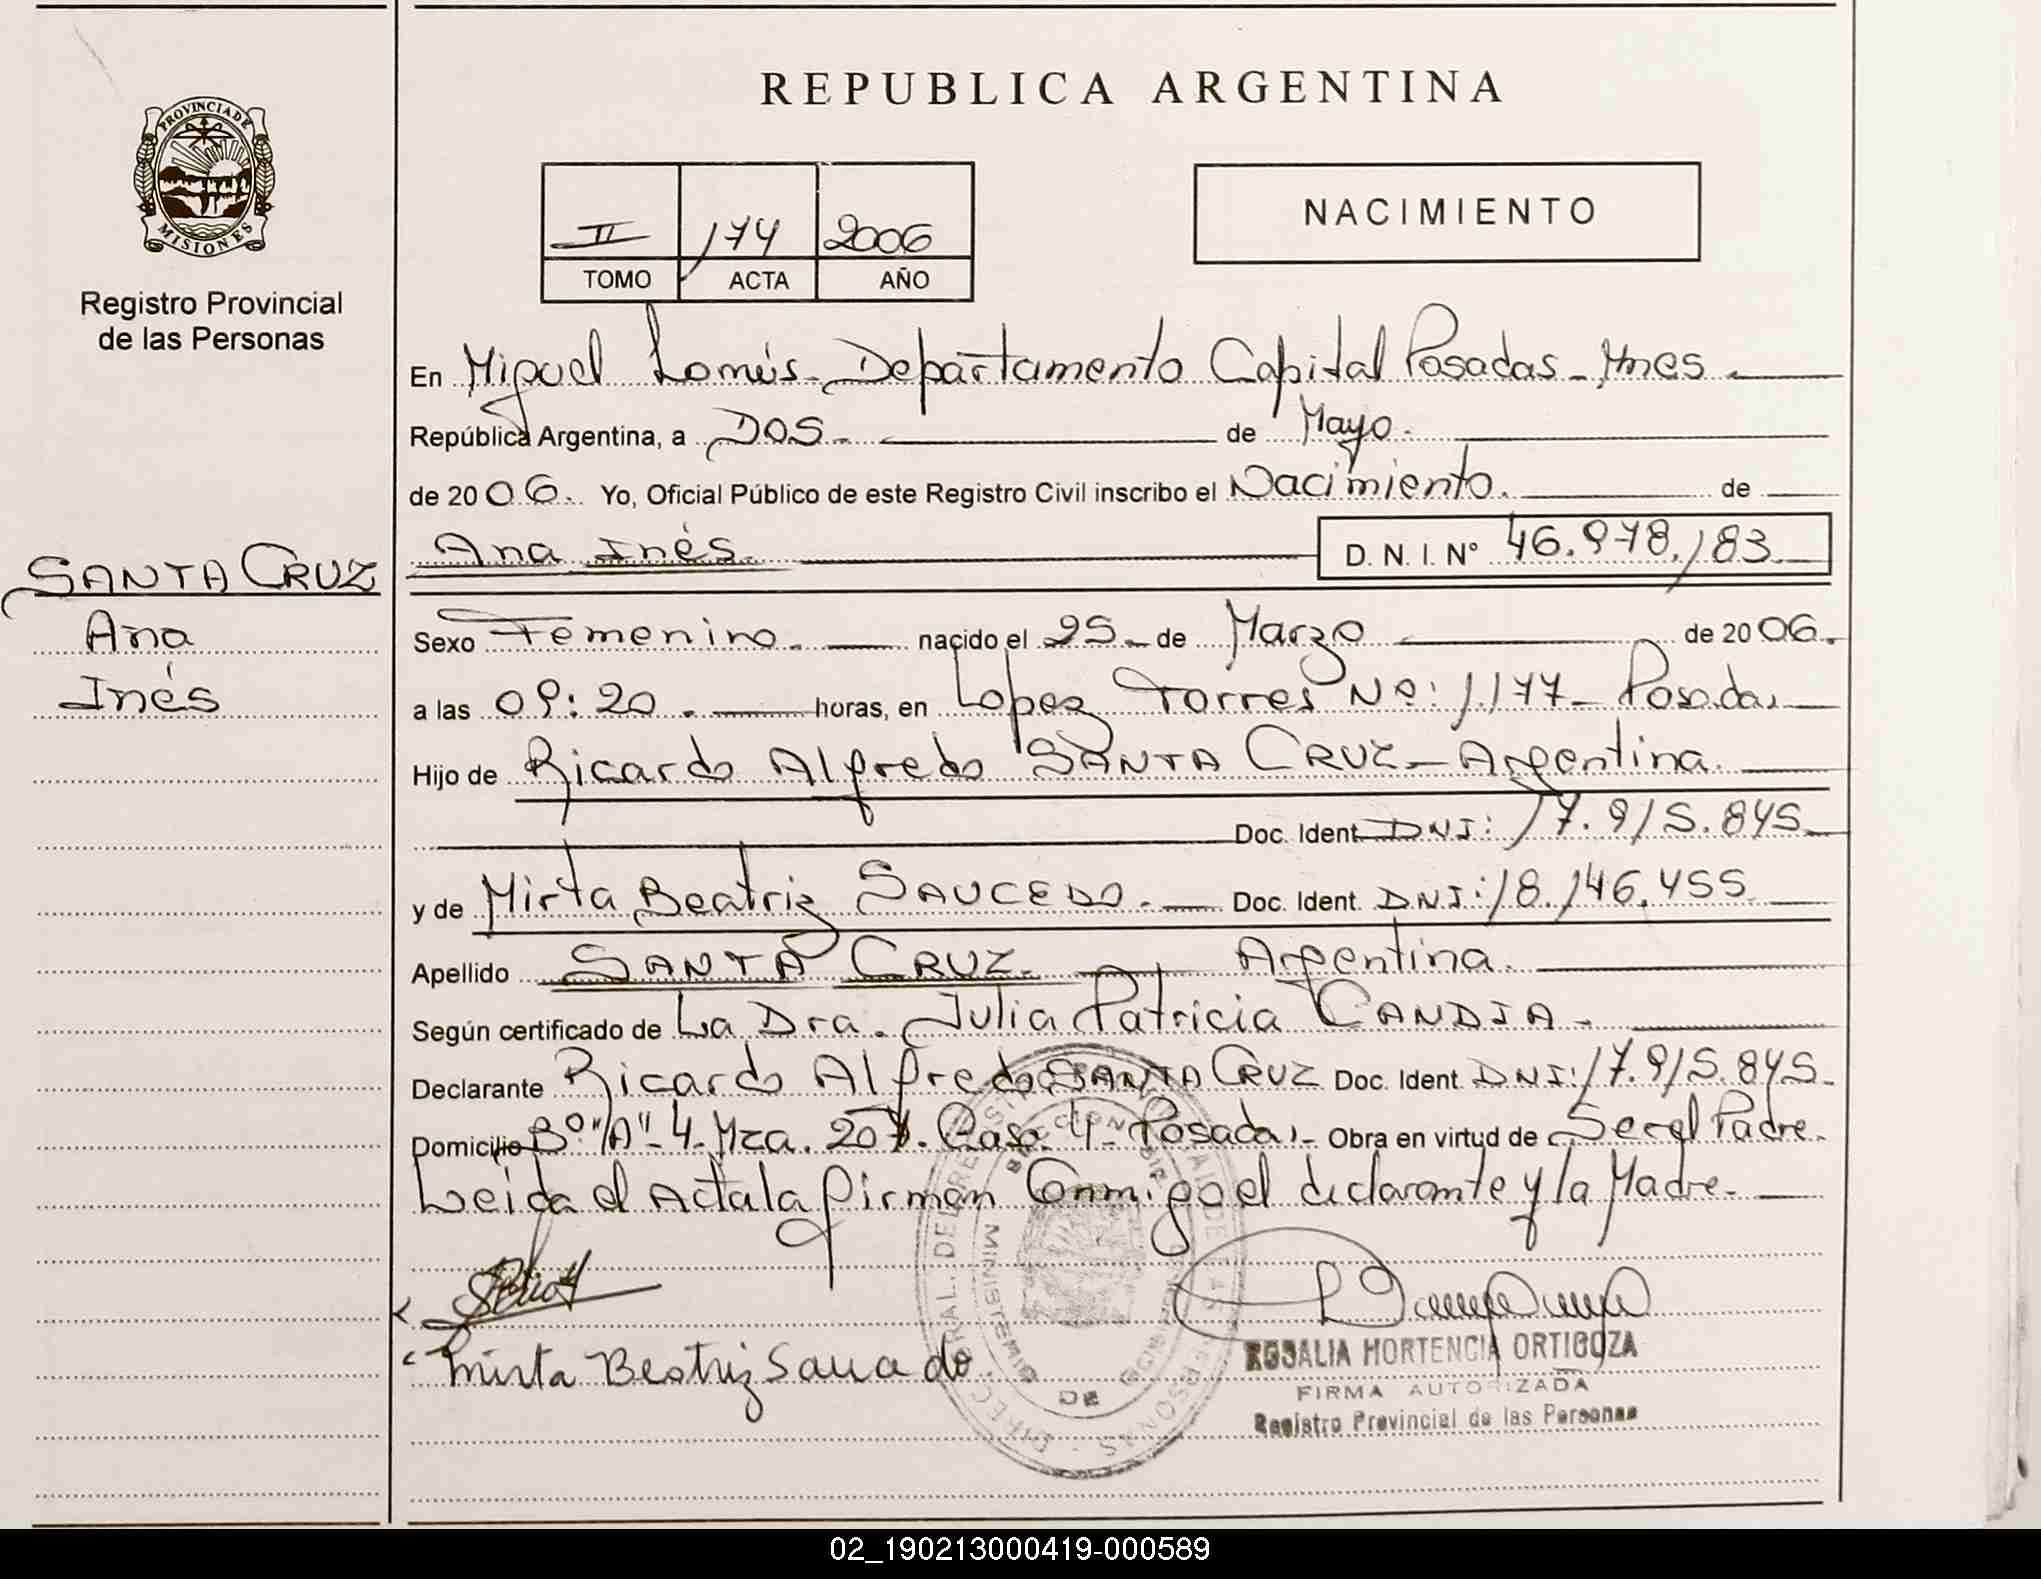 PROVINCIA DE
MISIONES
Registro Provincial
de las Personas
SANTA CRUZ
Ana
Inés
REPUBLICA ARGENTINA
II 174 2006
TOMO ACTA AÑO
NACIMIENTO
En Miguel Lanús - Departamento Capital Posadas - Mnes
República Argentina, a DOS. de Mayo.
de 2006. Yo, Oficial Público de este Registro Civil inscribo el Nacimiento. de
Ana Inés. D. N. I. N° 46.978.183
Sexo Femenino. nacido el 25 de Marzo de 2006.
a las 09:20. horas, en Lopez Torres Nº: 1.177 - Posadas
Hijo de Ricardo Alfredo SANTA CRUZ - Argentina.
Doc. Ident. DNI: 17.915.845
y de Mirta Beatriz SAUCEDO. Doc. Ident. DNI: 18.146.455
Apellido SANTA CRUZ. Argentina.
Según certificado de La Dra. Julia Patricia CANDIA -
Declarante Ricardo Alfredo SANTA CRUZ Doc. Ident. DNI: 17.915.845
Domicilio Bº "A"-4- Mza. 207. Casa 4 - Posadas - Obra en virtud de Ser el Padre.
Leida el Acta la firman Conmigo el declarante y la Madre.
Mirta Beatriz Saucedo
ROSALIA HORTENCIA ORTIGOZA
FIRMA AUTORIZADA
Registro Provincial de las Personas
02_190213000419-000589